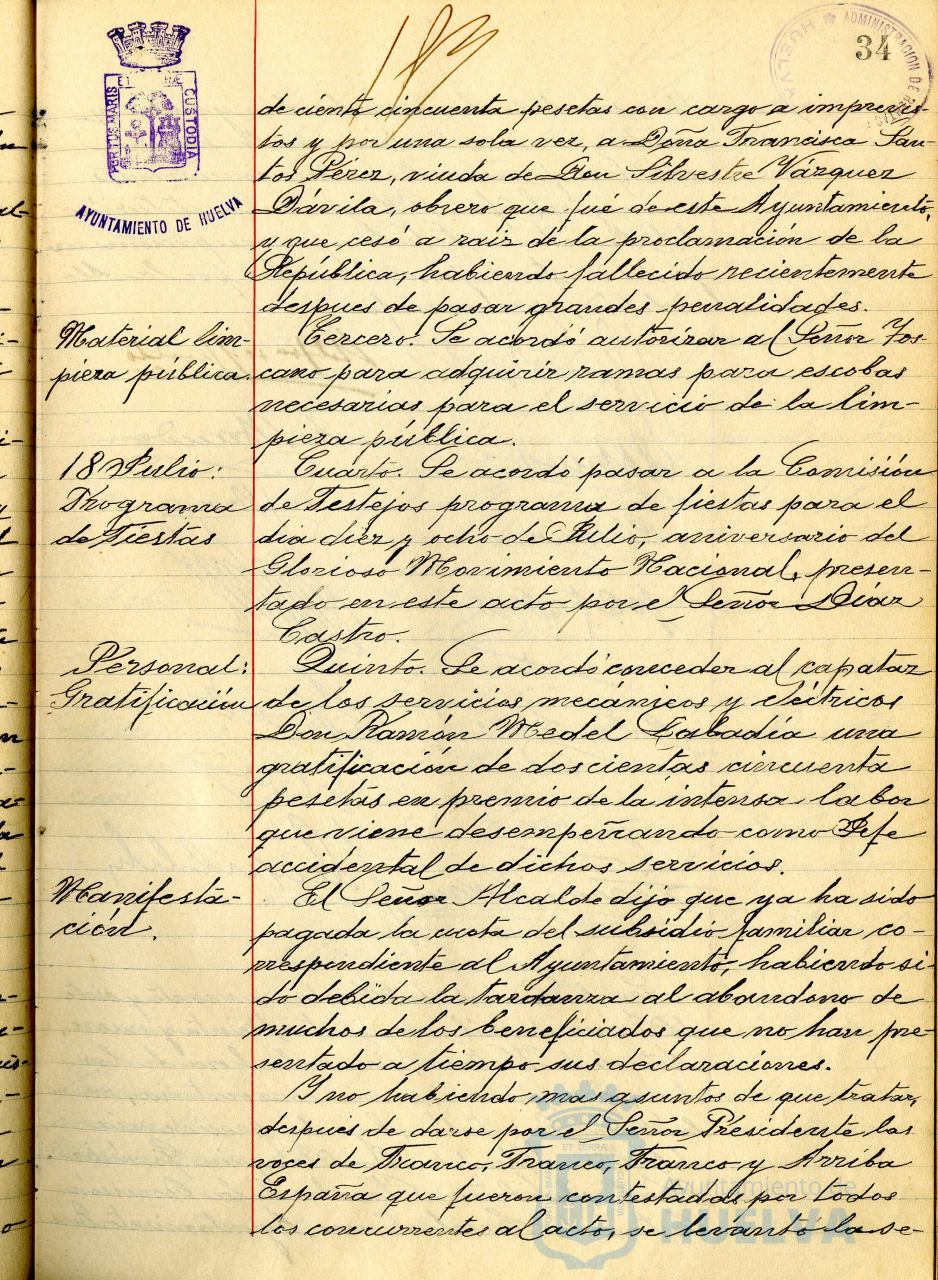 183
34
ADMINISTRACION DE
HUELVA
PORTUS MARIS
ET
CUSTODIA
AYUNTAMIENTO DE HUELVA
de ciento cincuenta pesetas con cargo a imprevis-
tos y por una sola vez, a Doña Francisca San-
tos Pérez, viuda de Don Silvestre Vázquez
Dávila, obrero que fué de este Ayuntamiento,
y que cesó a raiz de la proclamación de la
República, habiendo fallecido recientemente
despues de pasar grandes penalidades.
Material lim-
pieza pública.
Tercero. Se acordó autorizar al Señor Tos-
cano para adquirir ramas para escobas
necesarias para el servicio de la lim-
pieza pública.
18 Julio:
Programa
de Fiestas
Cuarto. Se acordó pasar a la Comisión
de Festejos programa de fiestas para el
dia diez y ocho de Julio, aniversario del
Glorioso Movimiento Nacional, presen-
tado en este acto por el Señor Díaz
Castro.
Personal:
Gratificación
Quinto. Se acordó conceder al capataz
de los servicios mecánicos y eléctricos
Don Ramón Medel Labadía una
gratificación de doscientas cincuenta
pesetas en premio de la intensa labor
que viene desempeñando como Jefe
accidental de dichos servicios.
Manifesta-
ción.
El Señor Alcalde dijo que ya ha sido
pagada la cuota del subsidio familiar co-
rrespondiente al Ayuntamiento, habiendo si-
do debida la tardanza al abandono de
muchos de los beneficiados que no han pre-
sentado a tiempo sus declaraciones.
Y no habiendo mas asuntos de que tratar,
despues de darse por el Señor Presidente las
voces de Franco, Franco, Franco y Arriba
España que fueron contestadas por todos
los concurrentes al acto, se levantó la se-
Ayuntamiento de
HUELVA